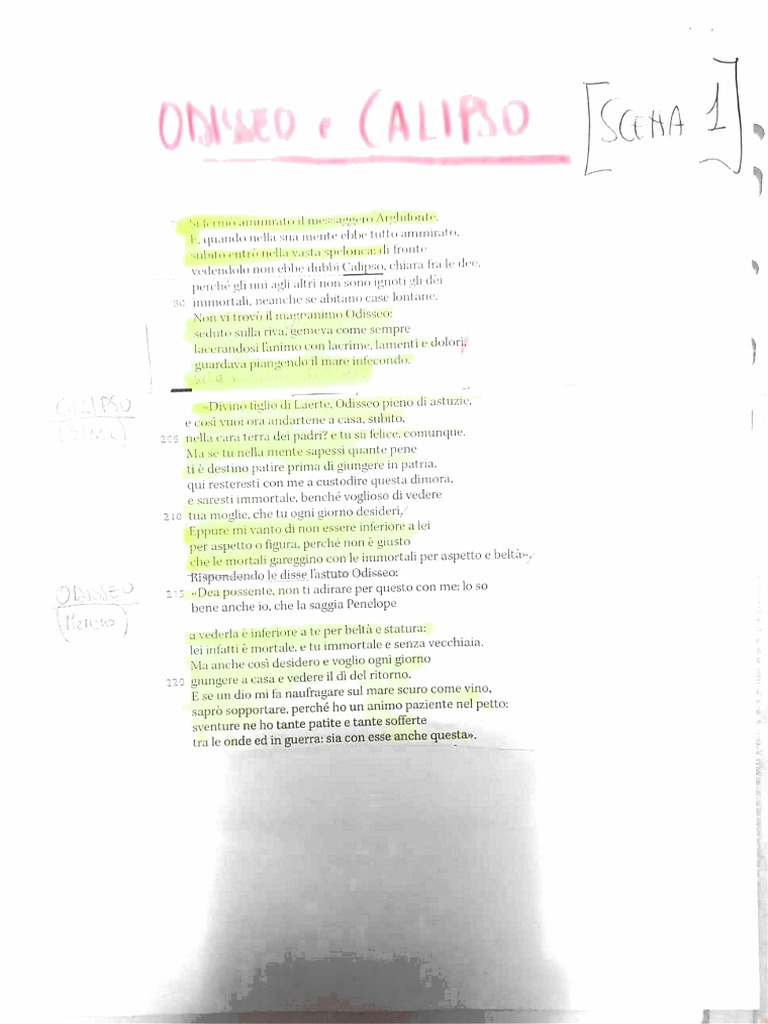 ODISSEO e CALIPSO
[SCENA 1]
Si fermò ammirato il messaggero Arghifonte.
E, quando nella sua mente ebbe tutto ammirato,
subito entrò nella vasta spelonca; di fronte
vedendolo non ebbe dubbi Calipso, chiara fra le dee,
perché gli uni agli altri non sono ignoti gli dèi
80 immortali, neanche se abitano case lontane.
Non vi trovò il magnanimo Odisseo:
seduto sulla riva, gemeva come sempre
lacerandosi l'animo con lacrime, lamenti e dolori,
guardava piangendo il mare infecondo.
CALIPSO
«Divino figlio di Laerte, Odisseo pieno di astuzie,
e così vuoi ora andartene a casa, subito,
205 nella cara terra dei padri? e tu sii felice, comunque.
Ma se tu nella mente sapessi quante pene
ti è destino patire prima di giungere in patria,
qui resteresti con me a custodire questa dimora,
e saresti immortale, benché voglioso di vedere
210 tua moglie, che tu ogni giorno desideri,
Eppure mi vanto di non essere inferiore a lei
per aspetto o figura, perché non è giusto
che le mortali gareggino con le immortali per aspetto e beltà»,
Rispondendo le disse l'astuto Odisseo:
ODISSEO
215 «Dea possente, non ti adirare per questo con me: lo so
bene anche io, che la saggia Penelope
a vederla è inferiore a te per beltà e statura:
lei infatti è mortale, e tu immortale e senza vecchiaia.
Ma anche così desidero e voglio ogni giorno
220 giungere a casa e vedere il dì del ritorno.
E se un dio mi fa naufragare sul mare scuro come vino,
saprò sopportare, perché ho un animo paziente nel petto:
sventure ne ho tante patite e tante sofferte
tra le onde ed in guerra: sia con esse anche questa».